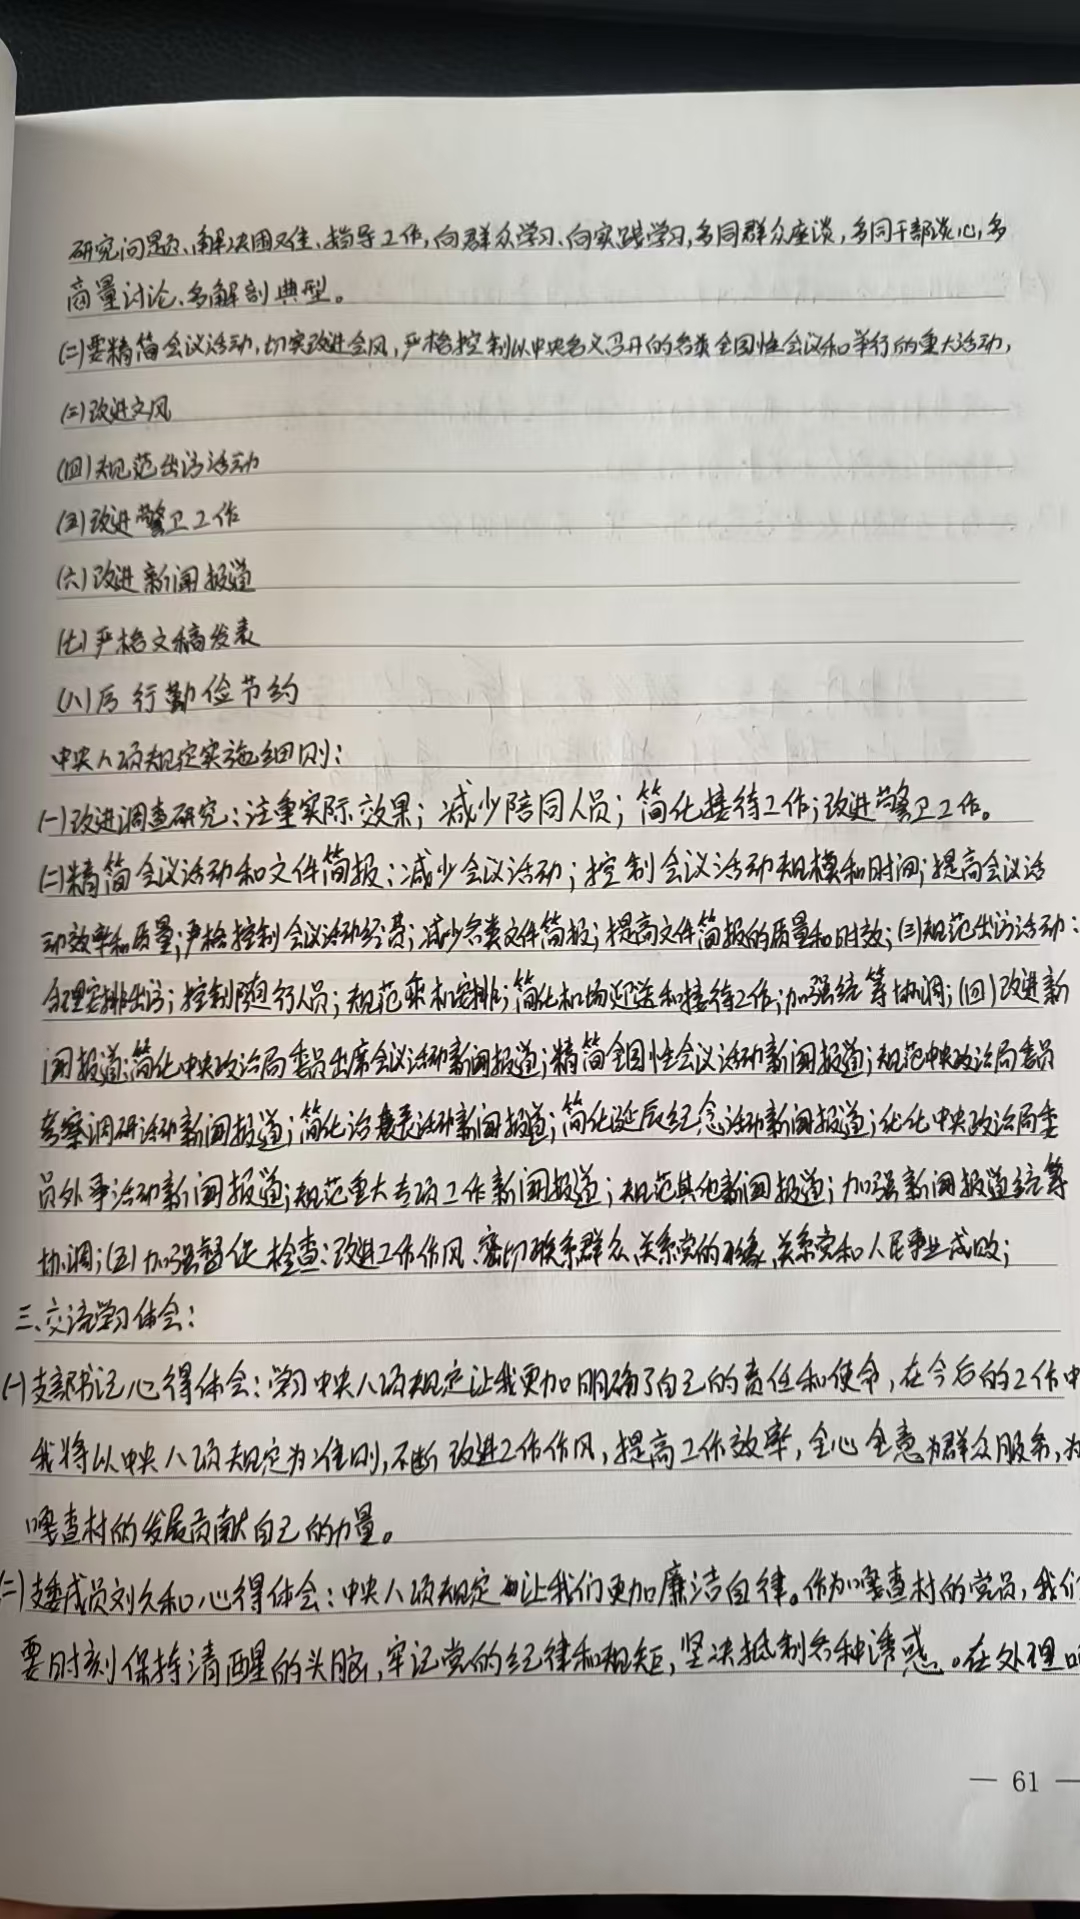 研究问题、解决困难、指导工作,向群众学习、向实践学习,多同群众座谈,多同干部谈心,多
商量讨论、多解剖典型。
(二)要精简会议活动,切实改进会风,严格控制以中央名义召开的各类全国性会议和举行的重大活动,
(三)改进文风
(四)规范出访活动
(五)改进警卫工作
(六)改进新闻报道
(七)严格文稿发表
(八)厉行勤俭节约
中央八项规定实施细则:
(一)改进调查研究:注重实际效果;减少陪同人员;简化接待工作;改进警卫工作。
(二)精简会议活动和文件简报:减少会议活动;控制会议活动规模和时间;提高会议活
动效率和质量;严格控制会议活动经费;减少各类文件简报;提高文件简报的质量和时效;(三)规范出访活动:
合理安排出访;控制随行人员;规范乘机安排;简化机场迎送和接待工作;加强统筹协调;(四)改进新
闻报道:简化中央政治局委员出席会议活动新闻报道;精简全国性会议活动新闻报道;规范中央政治局委员
考察调研活动新闻报道;简化治丧活动新闻报道;简化诞辰纪念活动新闻报道;优化中央政治局委
员外事活动新闻报道;规范重大专项工作新闻报道;规范其他新闻报道;加强新闻报道统筹
协调;(五)加强督促检查:改进工作作风、密切联系群众、关系党的形象、关系党和人民事业成败;
三、交流学习体会:
(一)支部书记心得体会:学习中央八项规定让我更加明确了自己的责任和使命,在今后的工作中
我将以中央八项规定为准则,不断改进工作作风,提高工作效率,全心全意为群众服务,为
嘎查村的发展贡献自己的力量。
(二)支委成员刘久和心得体会:中央八项规定让我们更加廉洁自律。作为嘎查村的党员,我们
要时刻保持清醒的头脑,牢记党的纪律和规矩,坚决抵制各种诱惑。在处理
— 61 —